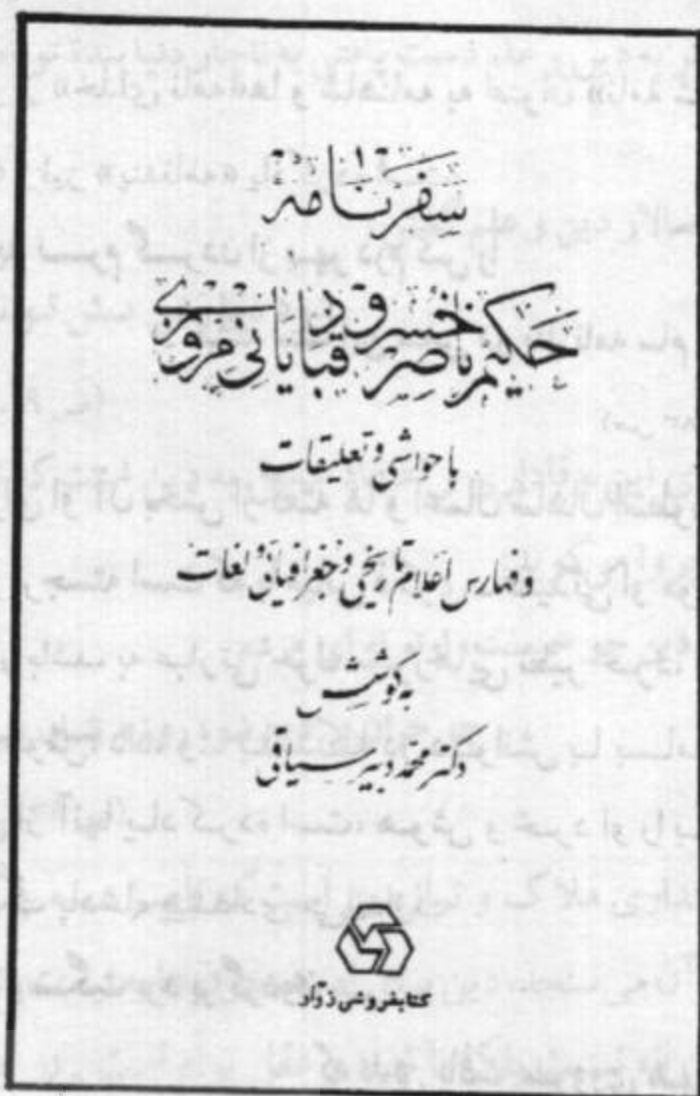 سفرنامهٔ
حکیم ناصر خسرو قبادیانی مروزی
با حواشی و تعلیقات
و فهارس اعلام تاریخی و جغرافیائی و لغات
به کوشش
دکتر محمد دبیر سیاقی
کتابفروشی زوّار